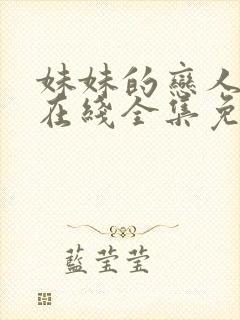 妹妹的戀人
在綫全集免
藍莹莹